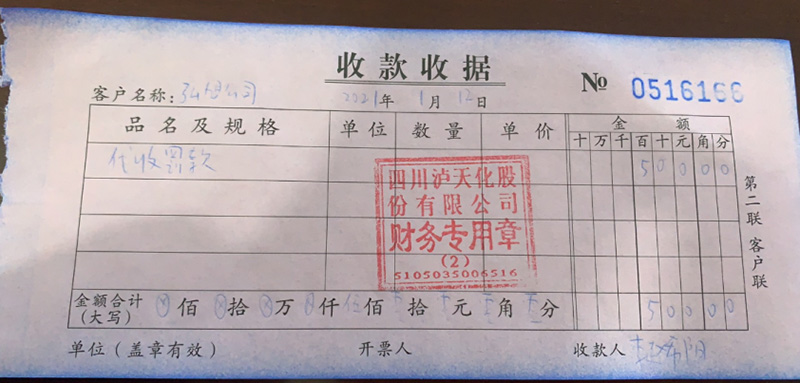 收款收据
№ 0516166
客户名称： 公司 2021年 1月 12日
品名及规格 单位 数量 单价 金额
十 万 千 百 十 元 角 分
代收罚款 5 0 0 0 0
四川泸天化股
份有限公司
财务专用章
(2)
5105035006516
第二联 客户联
金额合计 佰 拾 万 仟 伍佰 拾 元 角 分 5 0 0 0 0
(大写)
单位（盖章有效） 开票人 收款人